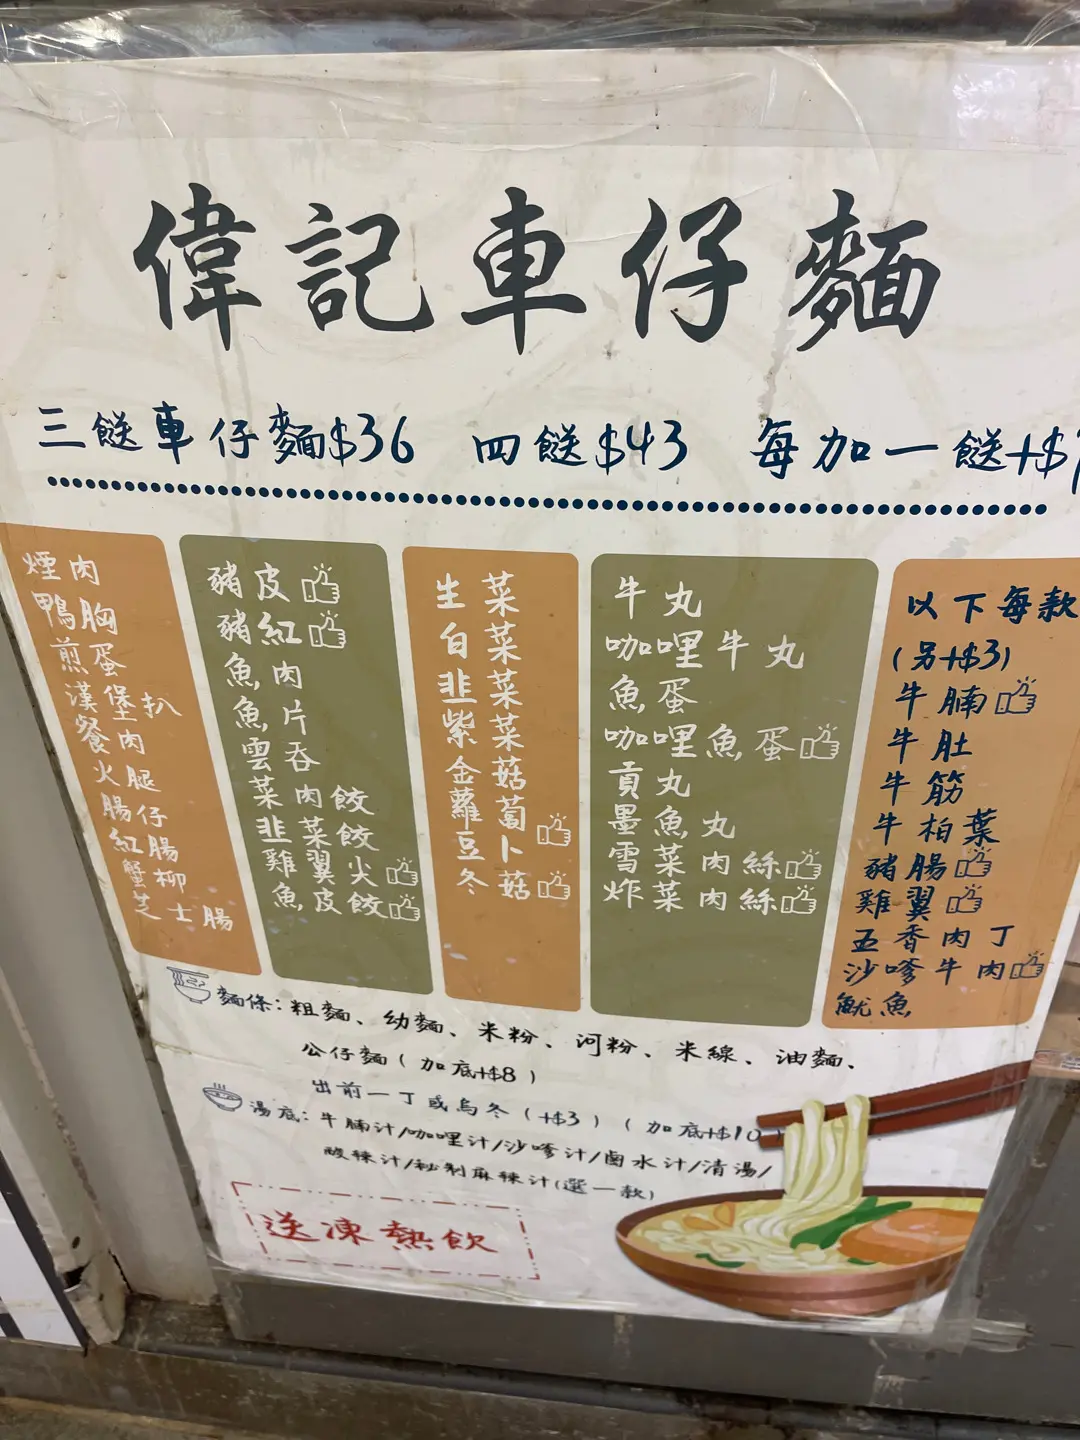 偉記車仔麵
三餸車仔麵$36 四餸$43 每加一餸+$
煙肉
鴨胸
煎蛋
漢堡扒
餐肉
火腿
腸仔
紅腸
蟹柳
芝士腸
豬皮
豬紅
魚肉
魚片
雲吞
菜肉餃
韭菜餃
雞翼尖
魚皮餃
生菜
白菜
韭菜
紫菜
金菇
蘿蔔
豆卜
冬菇
牛丸
咖哩牛丸
魚蛋
咖哩魚蛋
貢丸
墨魚丸
雪菜肉絲
炸菜肉絲
以下每款
(另+$3)
牛腩
牛肚
牛筋
牛柏葉
豬腸
雞翼
五香肉丁
沙嗲牛肉
魷魚
麵條：粗麵、幼麵、米粉、河粉、米線、油麵、
公仔麵(加底+$8)
出前一丁或烏冬(+$3)(加底+$10)
湯底：牛腩汁/咖哩汁/沙嗲汁/鹵水汁/清湯/
酸辣汁/秘制麻辣汁(選一款)
送凍熱飲